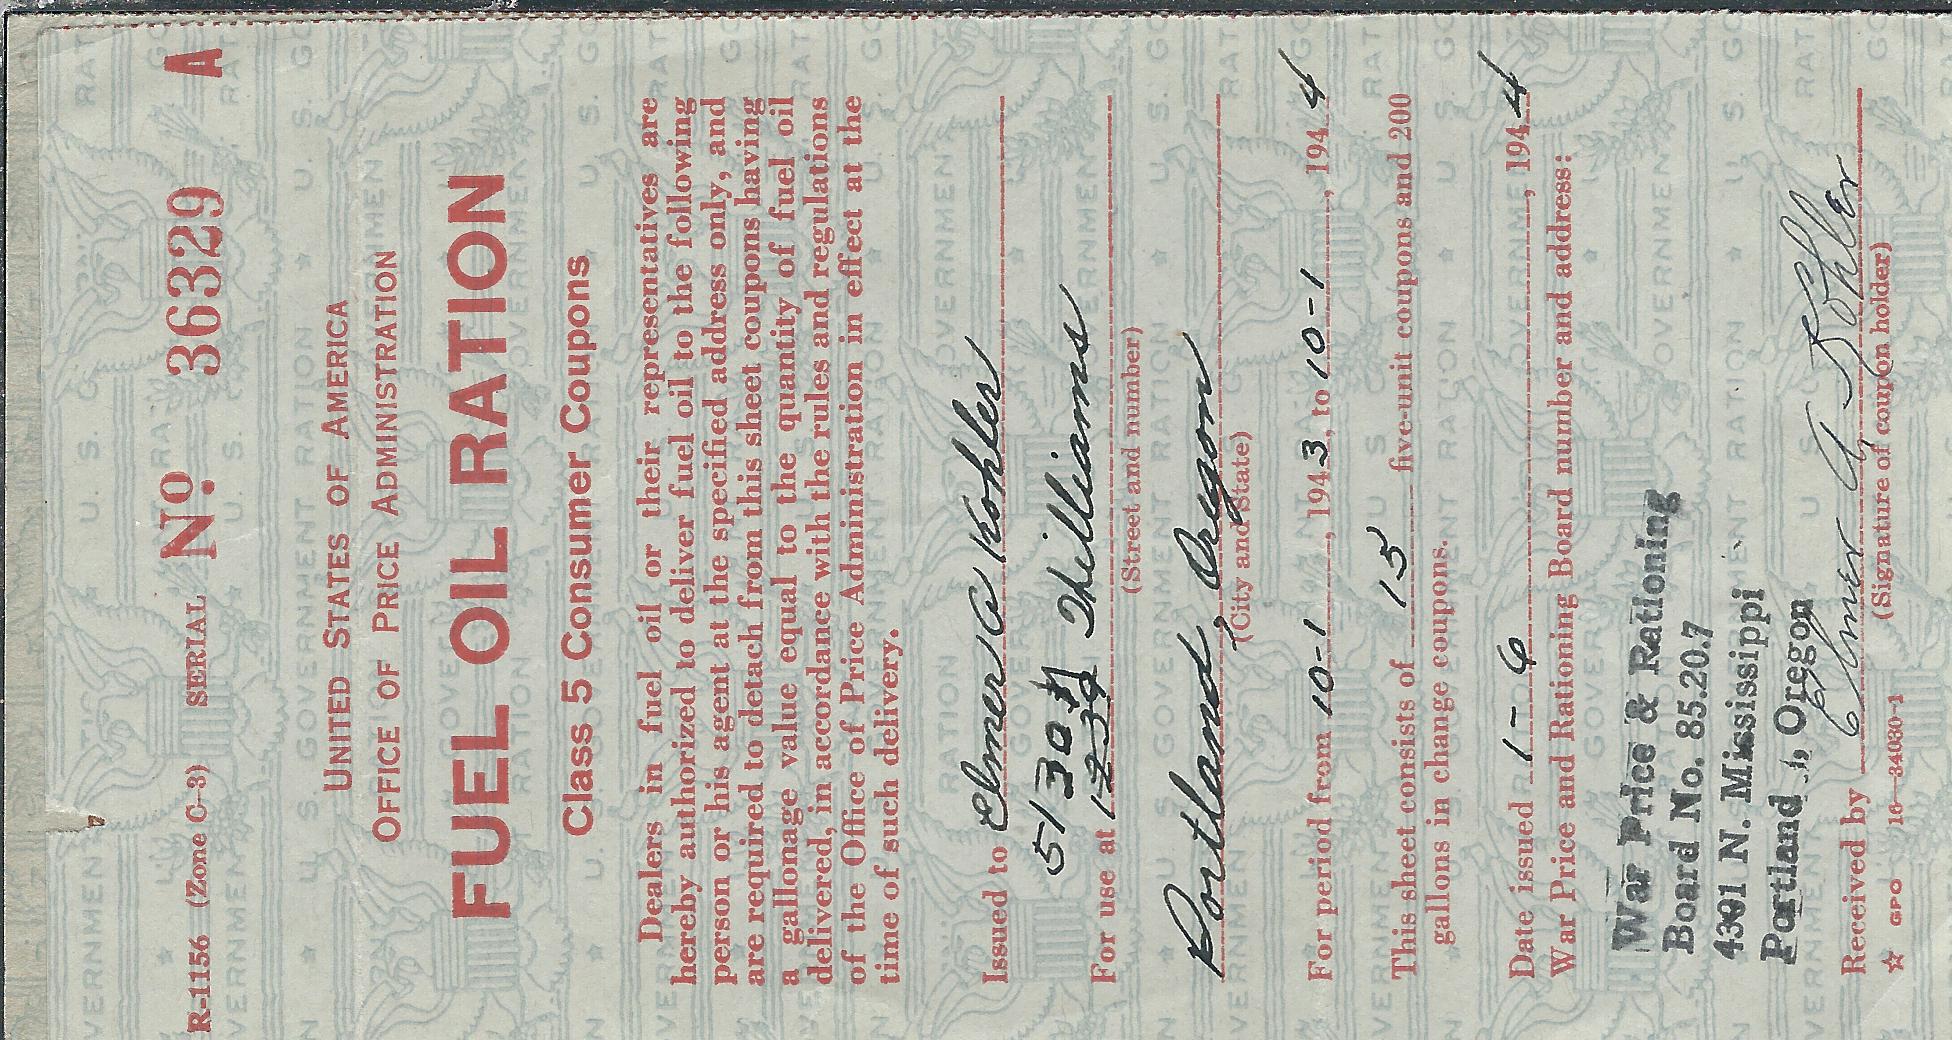 R-1156 (Zone C-3) SERIAL No 36329 A
UNITED STATES OF AMERICA
OFFICE OF PRICE ADMINISTRATION
FUEL OIL RATION
Class 5 Consumer Coupons
Dealers in fuel oil or their representatives are
hereby authorized to deliver fuel oil to the following
person or his agent at the specified address only, and
are required to detach from this sheet coupons having
a gallonage value equal to the quantity of fuel oil
delivered, in accordance with the rules and regulations
of the Office of Price Administration in effect at the
time of such delivery.
Issued to Elmer A Kohler
5130 N
For use at 1239 Williams
(Street and number)
Portland, Oregon
(City and State)
For period from 10-1, 1943, to 10-1, 1944
This sheet consists of 15 five-unit coupons and 200
gallons in change coupons.
Date issued 1-6, 1944
War Price and Rationing Board number and address:
War Price & Rationing
Board No. 85.20.7
4301 N. Mississippi
Portland, Oregon
Received by Elmer A Kohler
(Signature of coupon holder)
☆ GPO 16-34030-1